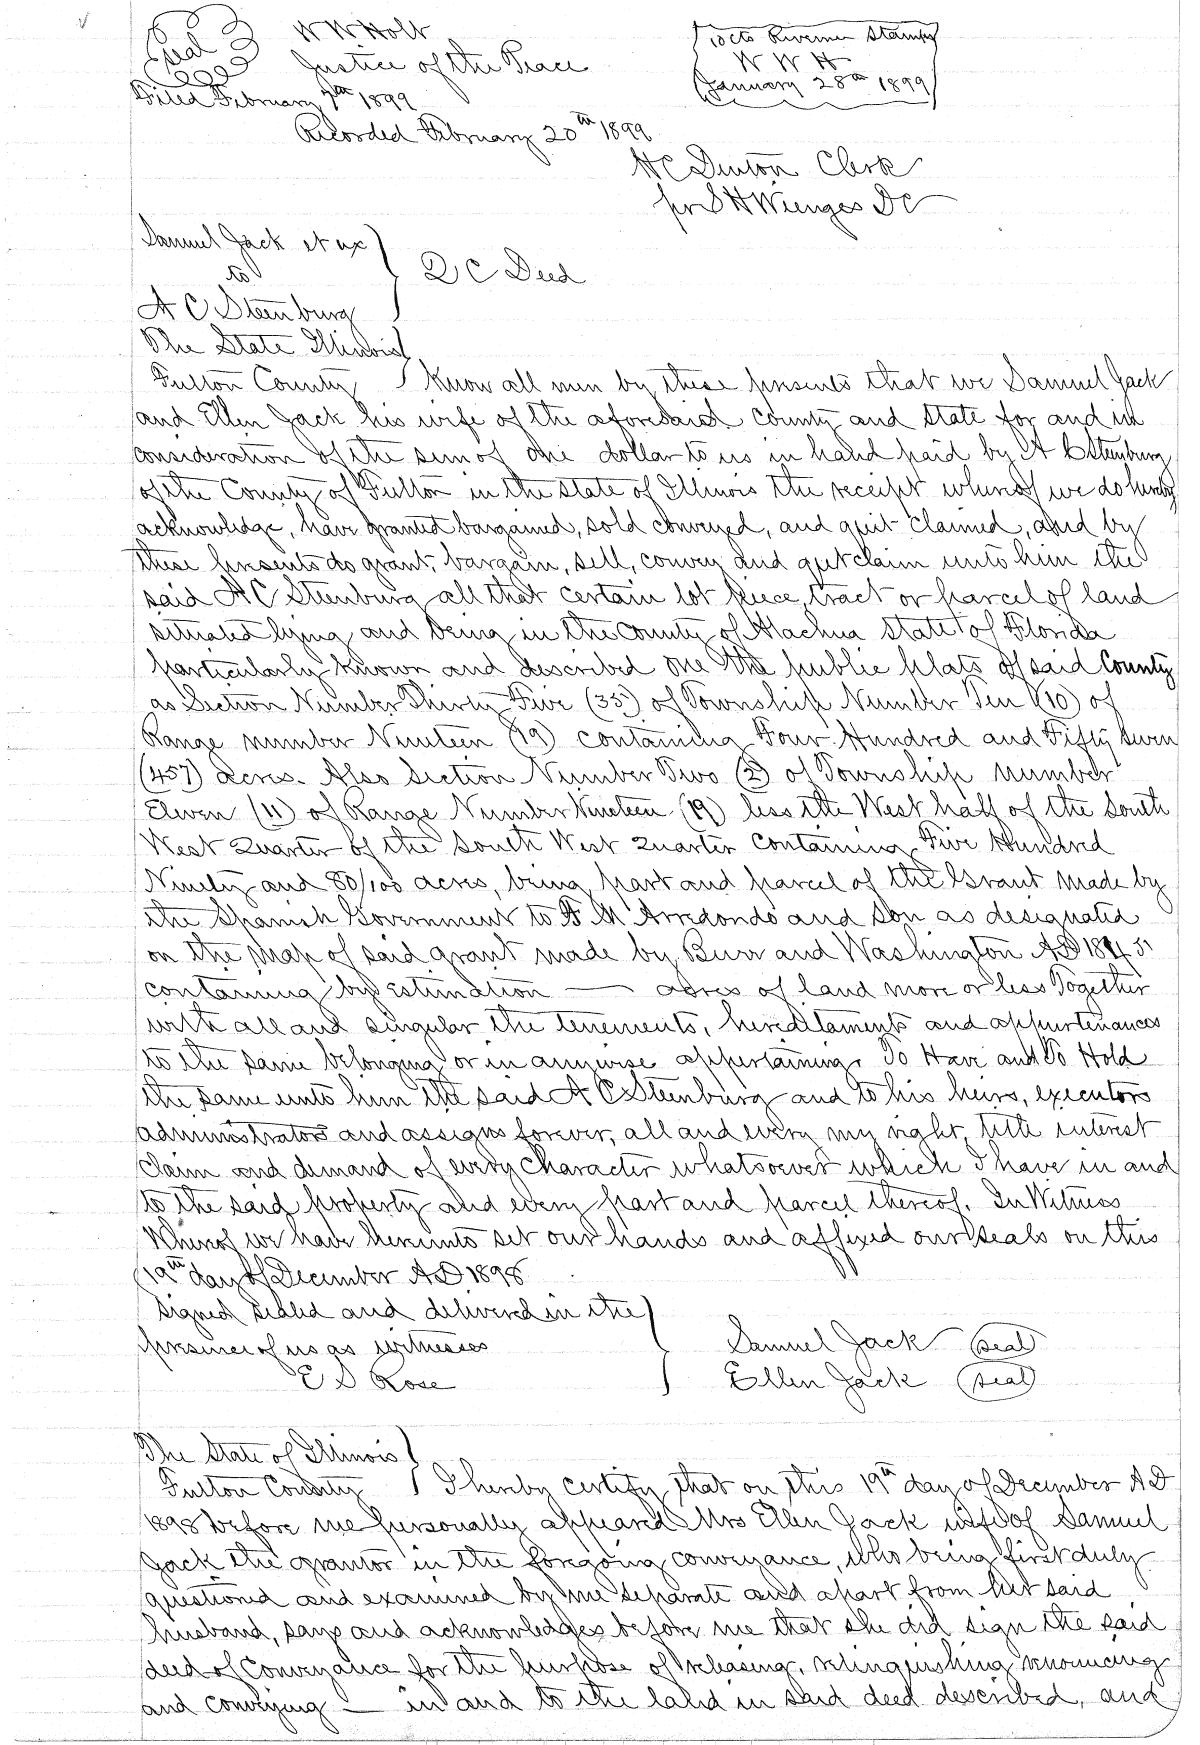 Seal W W Holt
Justice of the Peace
10cts Revenue Stamp
W W H
January 28th 1899
Filed February 7th 1899
Recorded February 20th 1899
H C Denton Clerk
per S H Wienges DC
Samuel Jack et ux
to
A C Steenburg
Q C Deed
The State Illinois
Fulton County Know all men by these presents that we Samuel Jack
and Ellen Jack his wife of the aforesaid county and state for and in
consideration of the sum of one dollar to us in hand paid by A C Steenburg
of the County of Fulton in the state of Illinois the receipt whereof we do hereby
acknowledge, have granted bargained, sold conveyed, and quit claimed, and by
these presents do grant, bargain, sell, convey and quitclaim unto him the
said A C Steenburg all that certain lot piece, tract or parcel of land
situated lying and being in the County of Alachua State of Florida
particularly known and described one the public plats of said County
as Section Number Thirty Five (35) of Township Number Ten (10) of
Range number Nineteen (19) containing Four Hundred and Fifty Seven
(457) acres. Also Section Number Two (2) of Township number
Eleven (11) of Range Number Nineteen (19) less the West half of the South
West Quarter of the South West Quarter containing Five Hundred
Ninety and 80/100 acres, being part and parcel of the Grant made by
the Spanish Government to F M Arredondo and Son as designated
on the Map of said grant made by Burr and Washington AD 1845
containing by estimation — acres of land more or less Together
with all and singular the tenements, hereditaments and appurtenances
to the same belonging or in anywise appertaining. To Have and To Hold
the same unto him the said A C Steenburg and to his heirs, executors
administrators and assigns forever, all and every my right, title interest
claim and demand of every Character whatsoever which I have in and
to the said property and every part and parcel thereof. In Witness
Whereof we have hereunto set our hands and affixed our seals on this
19th day of December AD 1898
Signed sealed and delivered in the
presence of us as witnesses
E D Rose
Samuel Jack seal
Ellen Jack seal
The State of Illinois
Fulton County I hereby certify that on this 19th day of December AD
1898 before me personally appeared Mrs Ellen Jack wife of Samuel
Jack the grantor in the foregoing conveyance, who being first duly
questioned and examined by me separate and apart from her said
husband, says and acknowledges before me that she did sign the said
deed of Conveyance for the purpose of releasing, relinquishing renouncing
and conveying — in and to the land in said deed described, and